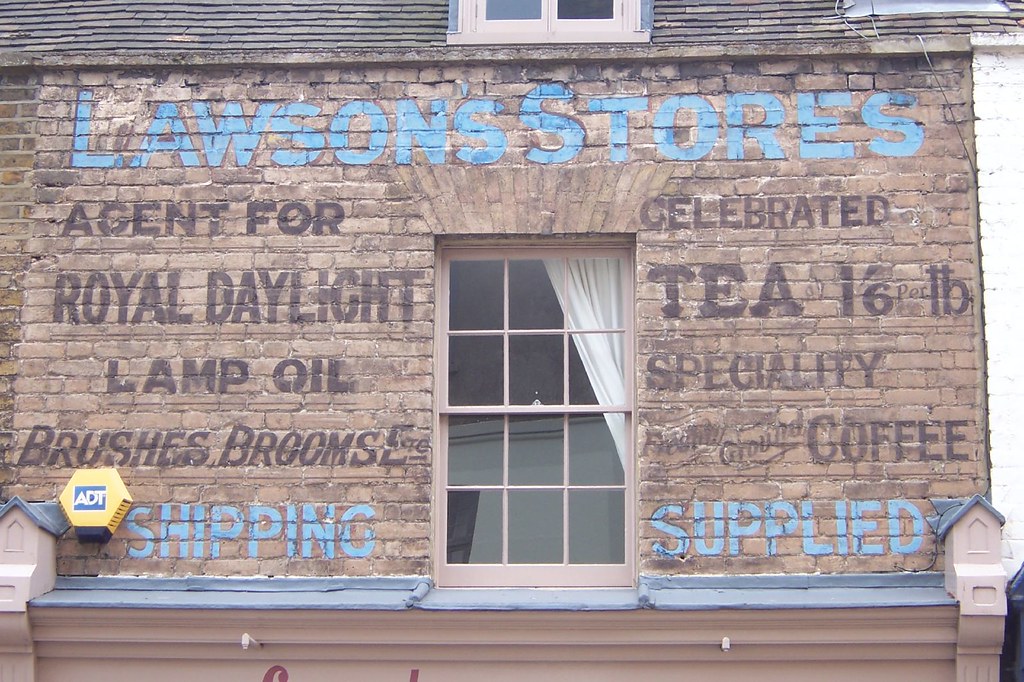 LAWSON'S STORES
AGENT FOR
ROYAL DAYLIGHT
LAMP OIL
BRUSHES, BROOMS Etc
CELEBRATED
TEA at 1'6 per lb
SPECIALITY
Freshly Ground COFFEE
SHIPPING SUPPLIED
ADT